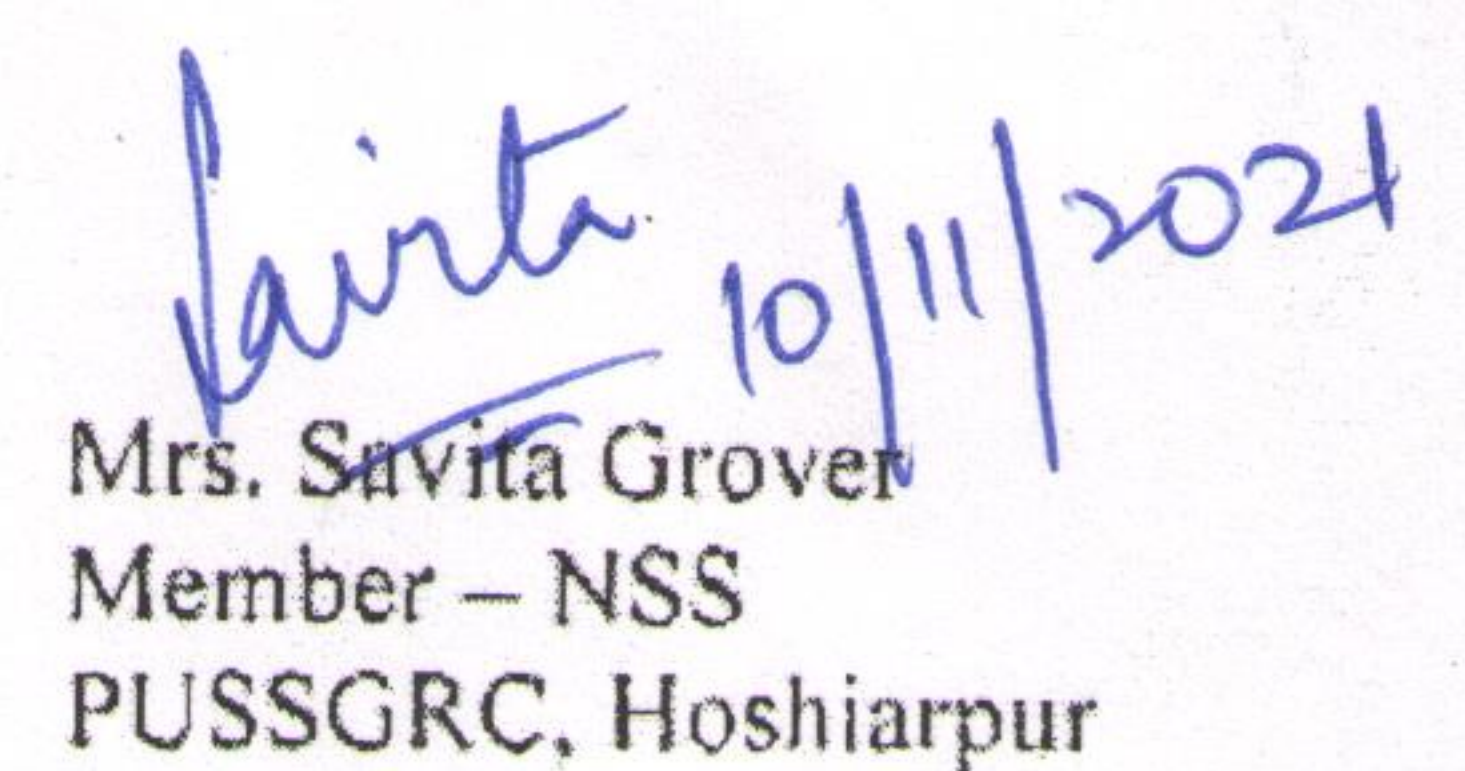 Savita 10/11/2021
Mrs. Savita Grover
Member – NSS
PUSSGRC, Hoshiarpur